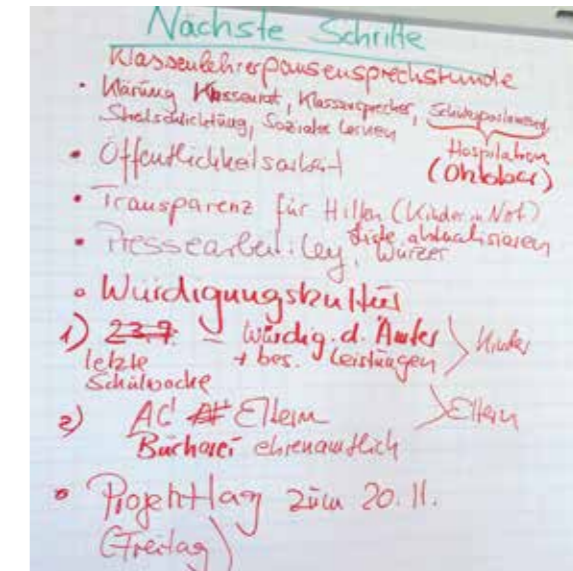 Nächste Schritte
Klassenlehrerpausensprechstunde
• Klärung Klassenrat, Klassensprecher, Schülerparlament,
Streitschlichtung, Soziales Lernen
Hospitation
(Oktober)
• Öffentlichkeitsarbeit
• Transparenz für Hilfen (Kinder in Not)
Liste aktualisieren
• Pressearbeit: Ley, Würzer
• Würdigungskultur
1) 23.7. – Würdig. d. Ämter
letzte + bes. Leistungen Kinder
Schulwoche
2) AC Eltern Eltern
Bücherei ehrenamtlich
• Projekttag zum 20.11.
(Freitag)